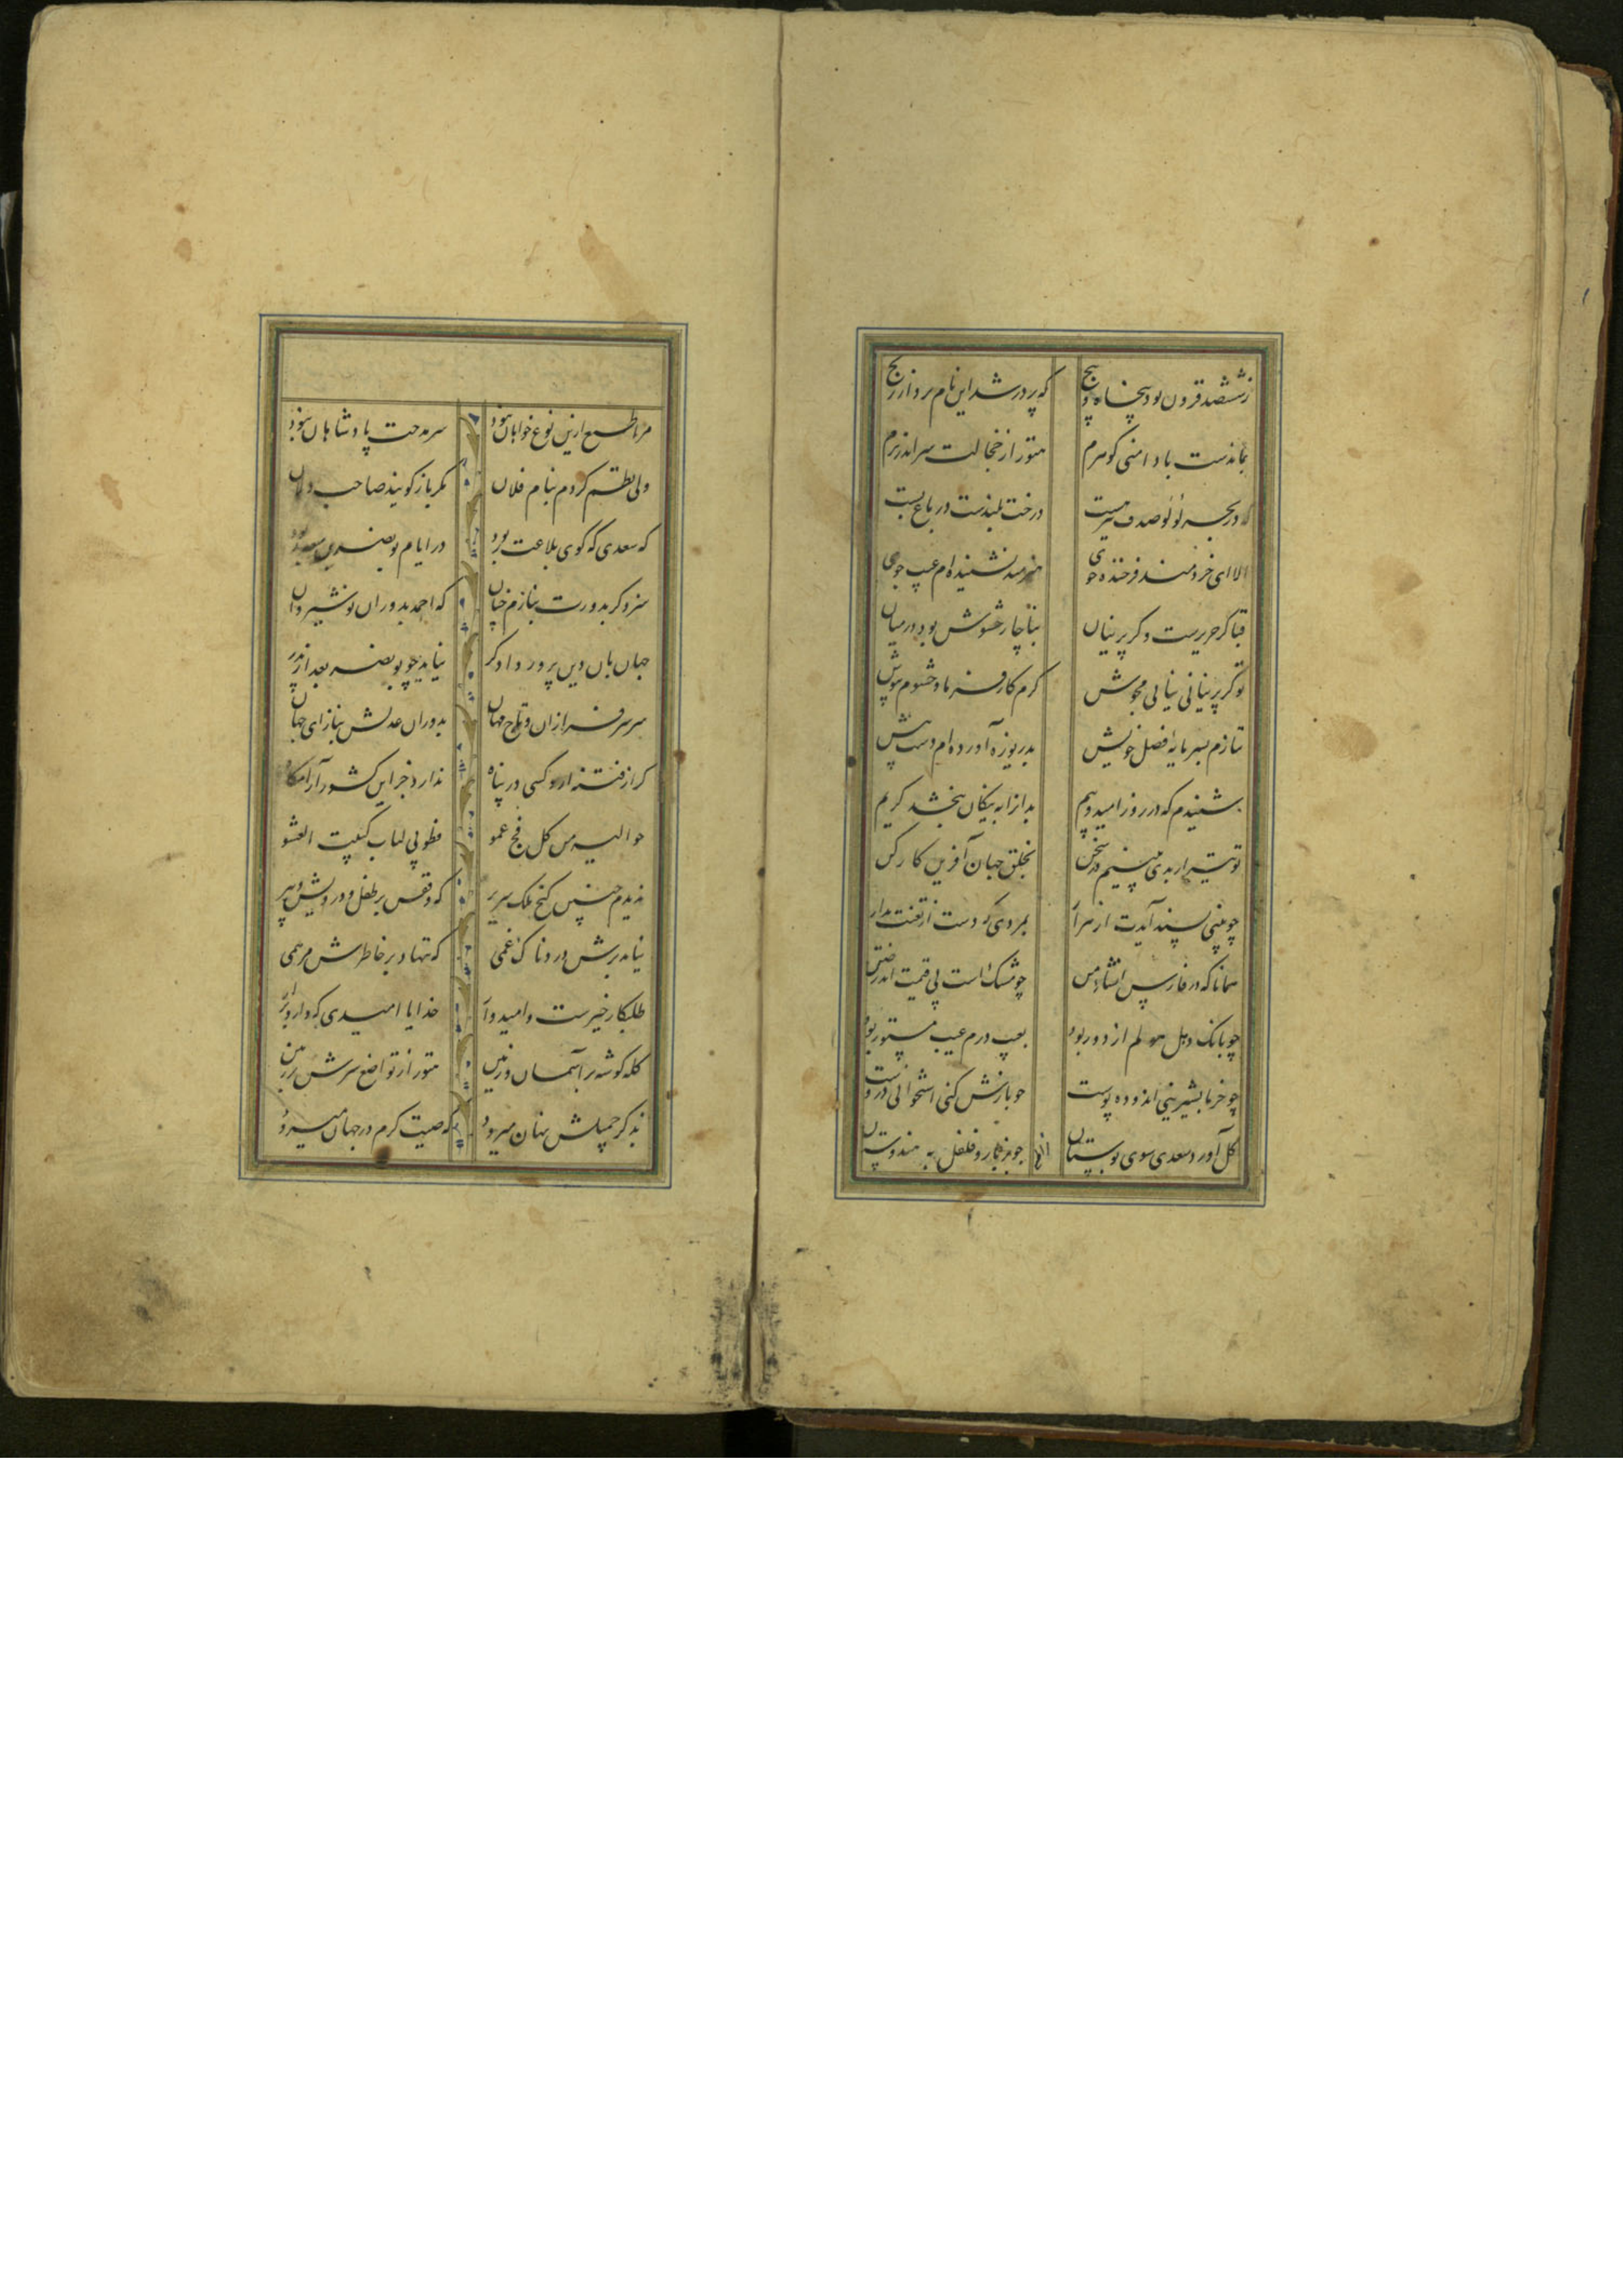 ز ششصد فزون بود پنجاه و پنج که پر در شد این نام بردار گنج
بماندست با دامنی گوهرم هنوز از خجالت سر اندر برم
که در بحر لؤلؤ صدف نیز هست درخت بلندست در باغ پست
الا ای خردمند فرخنده خوی هنرمند نشنیده‌ام عیب جوی
قبا گر حریرست و گر پرنیان بناچار حشوش بود در میان
تو گر پرنیانی نیابی مجوش کرم کار فرما و حشوم بپوش
ننازم بسرمایهٔ فضل خویش بدریوزه آورده‌ام دست پیش
شنیدم که در روز امید و بیم بدانرا به نیکان ببخشد کریم
تو نیز ار بدی بینیم در سخن بخلق جهان آفرین کار کن
چو بیتی پسند آیدت از هزار بمردی که دست از تعنت بدار
همانا که در فارس انشاء من چو مشک است بی قیمت اندر ختن
چو بانگ دهل هولم از دور بود بعیب درم عیب مستور بود
گل آورد سعدی سوی بوستان
چو خرما بشیرینی اندوده پوست چو بازش کنی استخوانی دروست
مرا طبع ازین نوع خواهان نبود سر مدحت پادشاهان نبود
ولی نظم کردم بنام فلان مگر باز گویند صاحب دلان
که سعدی که گوی بلاغت ربود در ایام بوبکر بن سعد بود
سزد گر بدورش بنازم چنان که احمد بدوران نوشیروان
جهان بان دین پرور دادگر نیامد چو بوبکر بعد از عمر
سر سرفرازان و تاج مهان بدوران عدلش بناز ای جهان
گر از فتنه آرد کسی در پناه ندارد جز این کشور آرامگاه
فطوبی لباب کبیت العتیق حوالیه من کل فج عمیق
ندیدم چنین گنج ملک سریر که وقفس بر طفل و درویش و پیر
نیامد برش دردناک غمی که ننهاد بر خاطرش مرهمی
طلبکار خیرست و امیدوار خدایا امیدی که دارد برآر
کله گوشه بر آسمان برین هنوز از تواضع سرش بر زمین
بذکر جمیلش نهان میرود که صیت کرم در جهان میرود